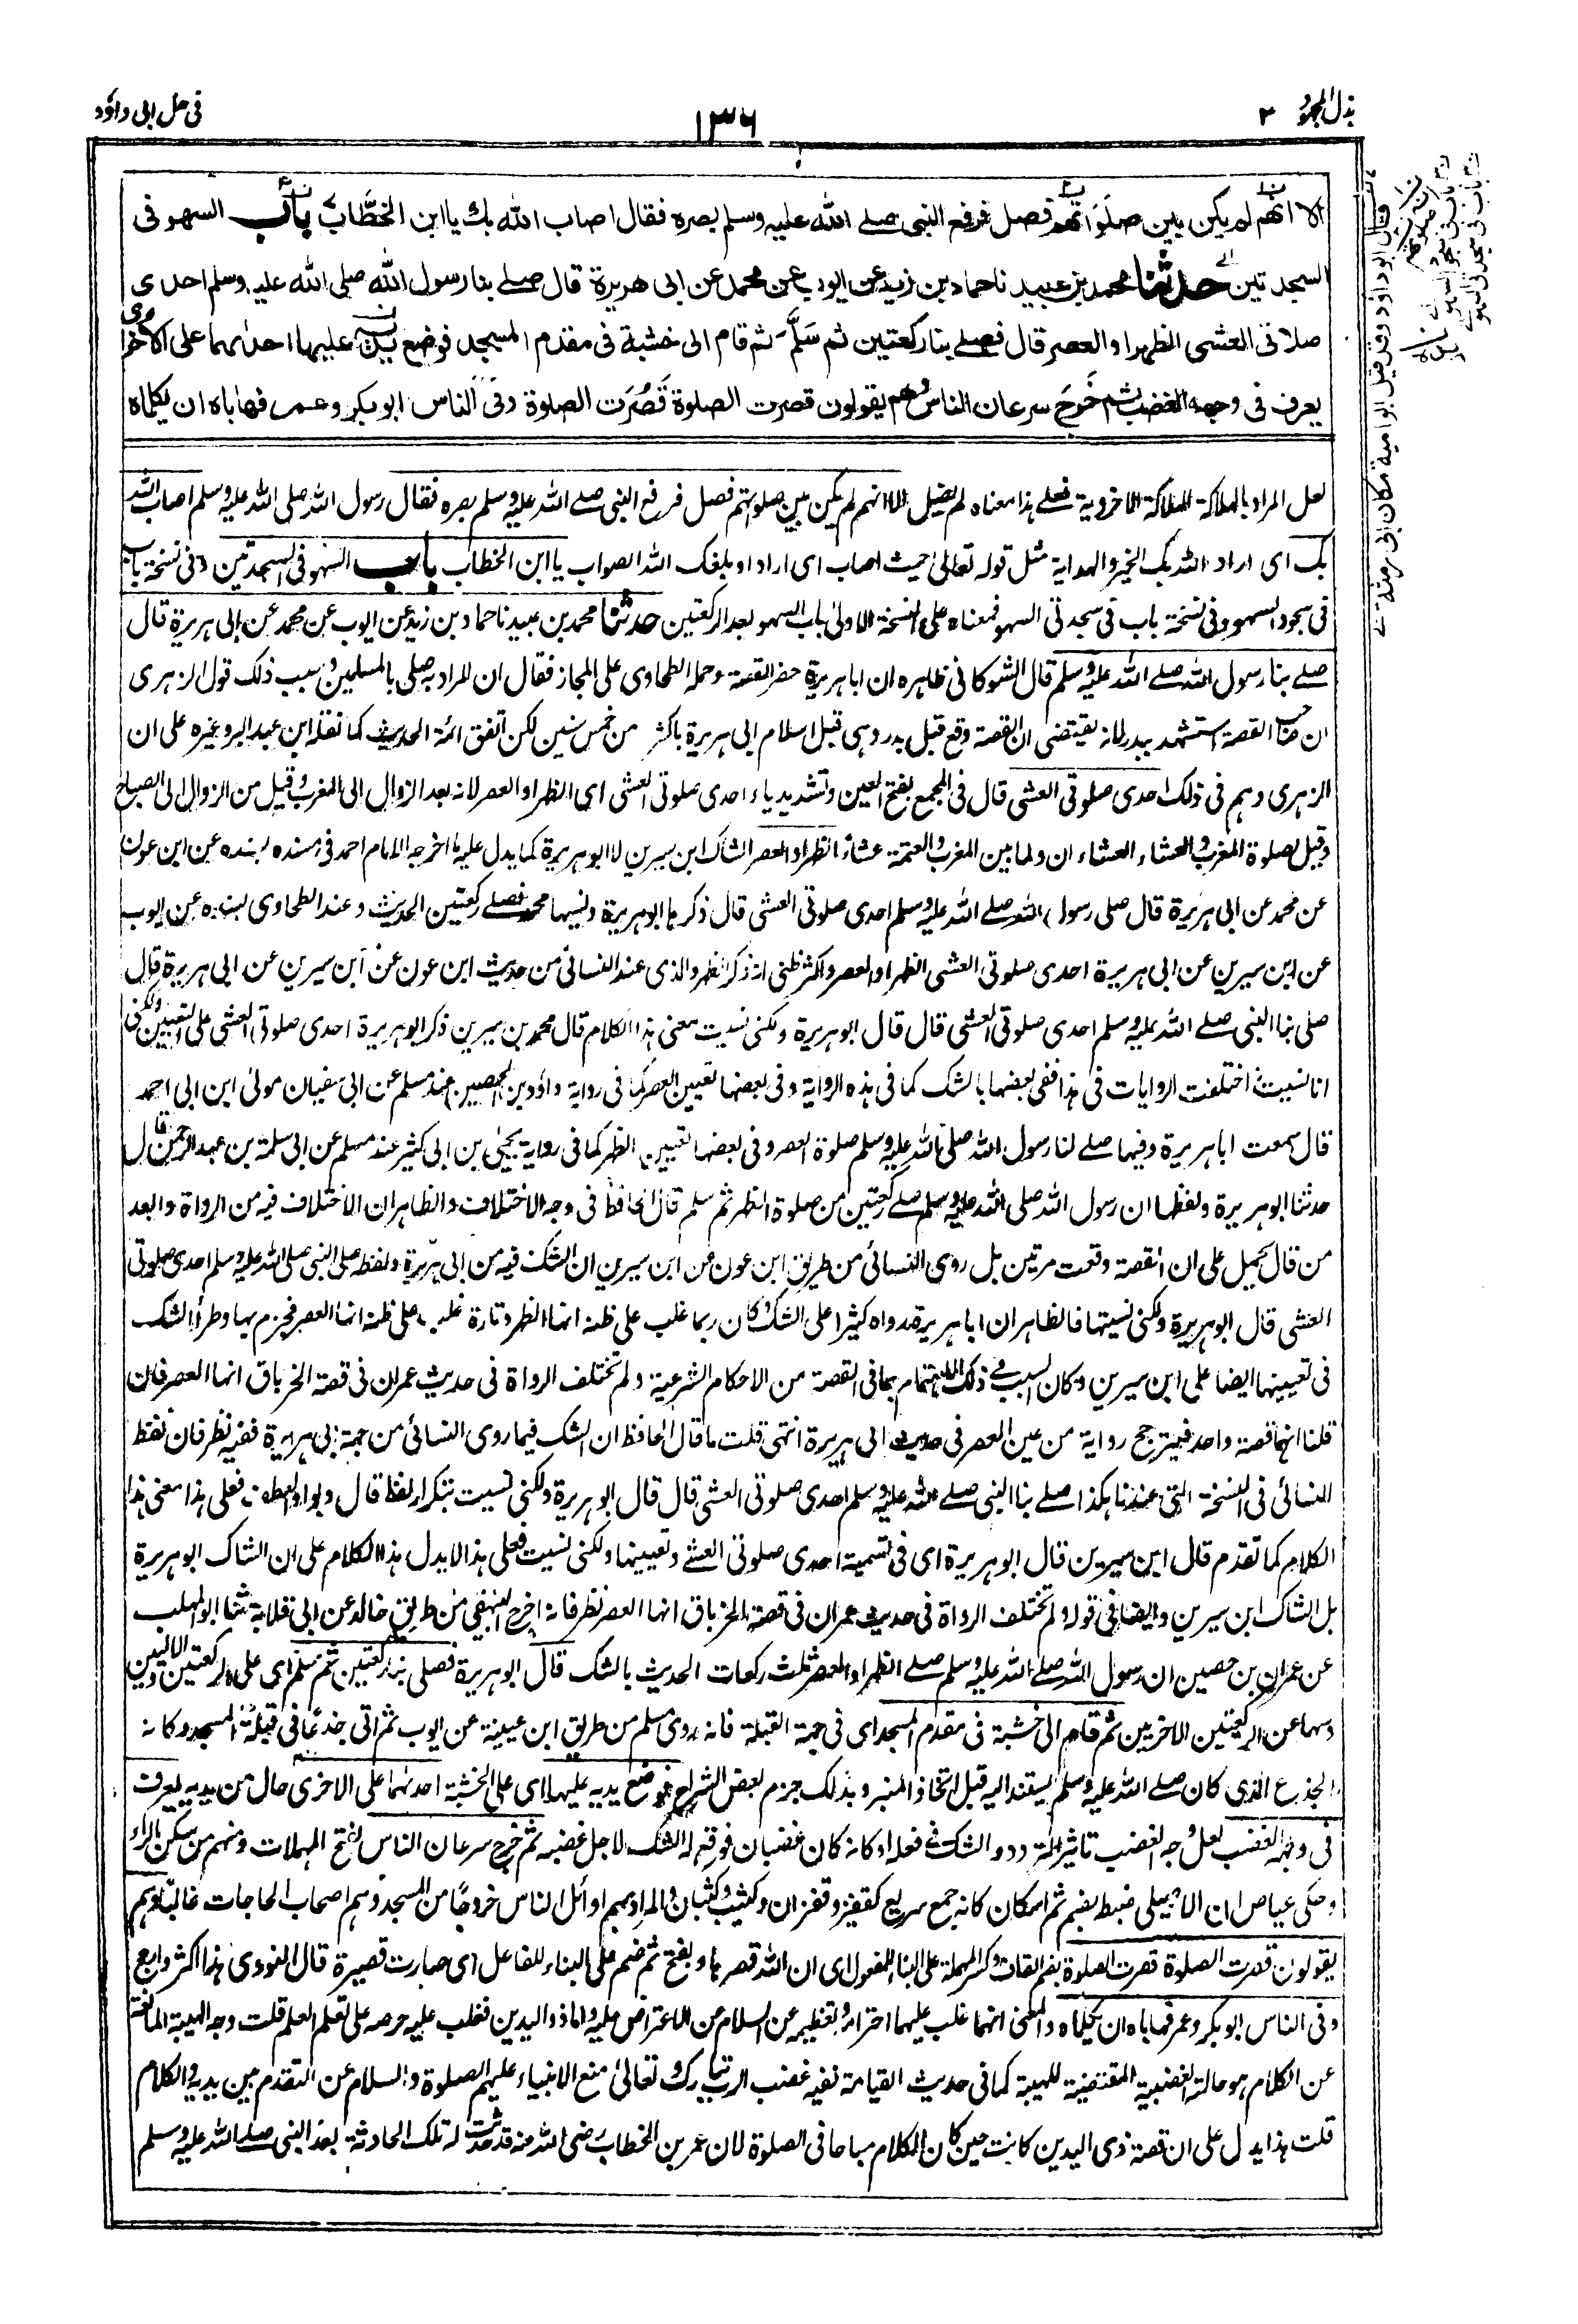 بذل المجهود ٢
١٣٦
فى حل ابى داؤد
الا انهم لم يكن بين صلوٰاتهم فصل فرفع النبى صلے الله عليه وسلم بصره فقال اصاب الله بك يا ابن الخطَّاب باب السهو فى
السجدتين حدثنا محمد بن عبيد نا حماد بن زيد عن ايوب عن محمد عن ابى هريرة قال صلے بنا رسول الله صلى الله عليه وسلم احدى
صلاتى العشى الظهر او العصر قال فصلے بنا ركعتين ثم سَلَّمَ ثم قام الى خشبة فى مقدم المسجد فوضع يديه عليها احداهما على الاخرى
يعرف فى وجهه الغضب ثم خَرَجَ سرعان الناس وهم يقولون قصرت الصلوة قَصُرَت الصلوة وفى الناس ابو بكر وعمر فهاباه ان يكلماه
لعل المراد بالهلاكة الهلاكة الاخروية فعلے هذا معناه لم يضل الا انهم لم يكن بين صلوتهم فصل فرفع النبى صلے الله عليه وسلم بصره فقال رسول الله صلى الله عليه وسلم اصاب الله
بك اى اراد الله بك الخير والهداية مثل قوله تعالىٰ حيث اصاب اى اراد او بلغك الله الصواب يا ابن الخطاب باب السهو فى السجدتين (وفى نسخة باب
فى سجود السهو وفى نسخة باب فى سجدتى السهو فمعناه على النسخة الاولىٰ باب السهو بعد الركعتين حدثنا محمد بن عبيد نا حماد بن زيد عن ايوب عن محمد عن ابى هريرة قال
صلے بنا رسول الله صلے الله عليه وسلم قال الشوكانى ظاهره ان ابا هريرة حضر القصة وحمله الطحاوى على المجاز فقال ان المراد به صلى بالمسلمين وسبب ذلك قول الزهرى
ان صاحب القصة استشهد ببدر لانه يقتضى ان القصة وقع قبل بدر وهى قبل اسلام ابى هريرة باكثر من خمس سنين لكن اتفق ائمة الحديث كما نقله ابن عبد البر وغيره على ان
الزهرى وهم فى ذلك احدى صلوتى العشى قال فى المجمع بفتح العين وتشديد ياء احدى صلوتى العشى اى الظهر او العصر لانه بعد الزوال الى المغرب وقيل من الزوال الى الصباح
وقيل لصلوة المغرب والعشاء العشاء ان ولما بين المغرب والعتمة عشاء الظهر او العصر الشاك ابن سيرين لا ابو هريرة كما يدل عليه ما اخرجه الامام احمد فى مسنده بسنده عن ابن عون
عن محمد عن ابى هريرة قال صلى رسول الله صلے الله عليه وسلم احدى صلوتى العشى قال ذكرها ابو هريرة ونسيها محمد فصلے ركعتين الحديث وعند الطحاوى بسنده عن ايوب
عن ابن سيرين عن ابى هريرة احدى صلوتى العشى الظهر او العصر واكثر ظنى انه ذكر الظهر والذى عند النسائى من حديث ابن عون عن ابن سيرين عن ابى هريرة قال
صلى بنا النبى صلے الله عليه وسلم احدى صلوتى العشى قال قال ابو هريرة ولكنى نسيت معنى هذا الكلام قال محمد بن سيرين ذكر ابو هريرة احدى صلوتى العشى على التعيين ولكنى
انا نسيت اختلفت الروايات فى هذا ففى بعضها بالشك كما فى هذه الرواية وفى بعضها تعيين العصر كما فى رواية داؤد بن الحصين عند مسلم عن ابى سفيان مولىٰ ابن ابى احمد
قال سمعت ابا هريرة وفيها صلے لنا رسول الله صلى الله عليه وسلم صلوة العصر وفى بعضها تعيين الظهر كما فى رواية يحيىٰ بن ابى كثير عند مسلم عن ابى سلمة بن عبد الرحمن قال
حدثنا ابو هريرة ولفظها ان رسول الله صلى الله عليه وسلم صلے ركعتين من صلوة الظهر ثم سلم قال الحافظ فى وجه الاختلاف والظاهر ان الاختلاف فيه من الرواة وابعد
من قال يحمل على ان القصة وقعت مرتين بل روى النسائى من طريق ابن عون عن ابن سيرين ان الشك فيه من ابى هريرة ولفظه صلى النبى صلى الله عليه وسلم احدى صلوتى
العشى قال ابو هريرة ولكنى نسيتها فالظاهر ان ابا هريرة رواه كثيرا على الشك وكان ربما غلب على ظنه انها الظهر وتارة غلب على ظنه انها العصر فجزم بها وطرأ الشك
فى تعيينها ايضا على ابن سيرين وكان السبب فى ذلك الاهتمام بما فى القصة من الاحكام الشرعية ولم تختلف الرواة فى حديث عمران فى قصة الخرباق انها العصر فان
قلنا انها قصة واحد فيترجح رواية من عين العصر فى حديث ابى هريرة انتهى قلت ما قال الحافظ ان الشك فيما روى النسائى من جهة ابى هريرة ففيه نظر فان لفظ
النسائى فى النسخة التى عندنا هكذا صلے بنا النبى صلے الله عليه وسلم احدى صلوتى العشى قال قال ابو هريرة ولكنى نسيت بتكرار لفظ قال وبواو العطف فعلى هذا معنى هذا
الكلام كما تقدم قال ابن سيرين قال ابو هريرة اى فى تسمية احدى صلوتى العشے وتعيينها ولكنى نسيت فعلى هذا لا يدل هذا الكلام على ان الشاك ابو هريرة
بل الشاك ابن سيرين وايضا فى قوله ولم تختلف الرواة فى حديث عمران فى قصة الخرباق انها العصر نظر فانه اخرج البيهقى من طريق خالد عن ابى قلابة ثنا ابو المهلب
عن عمران بن حصين ان رسول الله صلے الله عليه وسلم صلے الظهر او العصر ثلث ركعات الحديث بالشك قال ابو هريرة فصلى بنا ركعتين ثم سلم اى على الركعتين الاوليين
وسها عن الركعتين الاخريين ثم قام الى خشبة فى مقدم المسجد اى فى جهة القبلة فانه روى مسلم من طريق ابن عيينة عن ايوب ثم اتى جذعًا فى قبلة المسجد وكانه
الجذع الذى كان صلے الله عليه وسلم يستند اليه قبل اتخاذ المنبر وبذلك جزم بعض الشراح فوضع يديه عليها اى على الخشبة احدٰهما على الاخرى حال من يديه يعرف
فى وجهه الغضب لعل وجه الغضب تاثير التردد والشك فى فعله او كانه كان غضبان فوقع له الشك لاجل غضبه ثم خرج سرعان الناس بفتح المهملات ومنهم من سكن الراء
وحكى عياض ان الاصيلى ضبط بضم ثم اسكان كانه جمع سريع كقفيز وقفزان وكثيب وكثبان والمراد بهم اوائل الناس خروجًا من المسجد وهم اصحاب الحاجات غالبًا وهم
يقولون قصرت الصلوة قصرت الصلوة بضم القاف وكسر المهملة على البناء للمفعول اى ان الله قصرها وبفتح ثم ضم على البناء للفاعل اى صارت قصيرة قال النووى هذا اكثر وارجح
وفى الناس ابو بكر وعمر فهاباه ان يكلماه والمعنى انهما غلب عليهما احترامه وتعظيمه عن السلام من الاعتراض عليه واما ذو اليدين فغلب عليه حرصه على تعلم العلم قلت وجه الهيبة المانعة
عن الكلام هو حالته الغضبية المقتضية للهيبة كما فى حديث القيامة ففيه غضب الرب تبارك وتعالىٰ منع الانبياء عليهم الصلوة والسلام عن التقدم بين يديه والكلام
قلت هذا يدل على ان قصة ذى اليدين كانت حين كان الكلام مباحا فى الصلوة لان عمر بن الخطاب رضى الله عنه قد حدثت له تلك الحادثة بعد النبى صلے الله عليه وسلم
قال ابو داؤد وقد قيل ابو امية مكان ابى رمثة
باب فى سجود السهو
باب فى سجدتى السهو